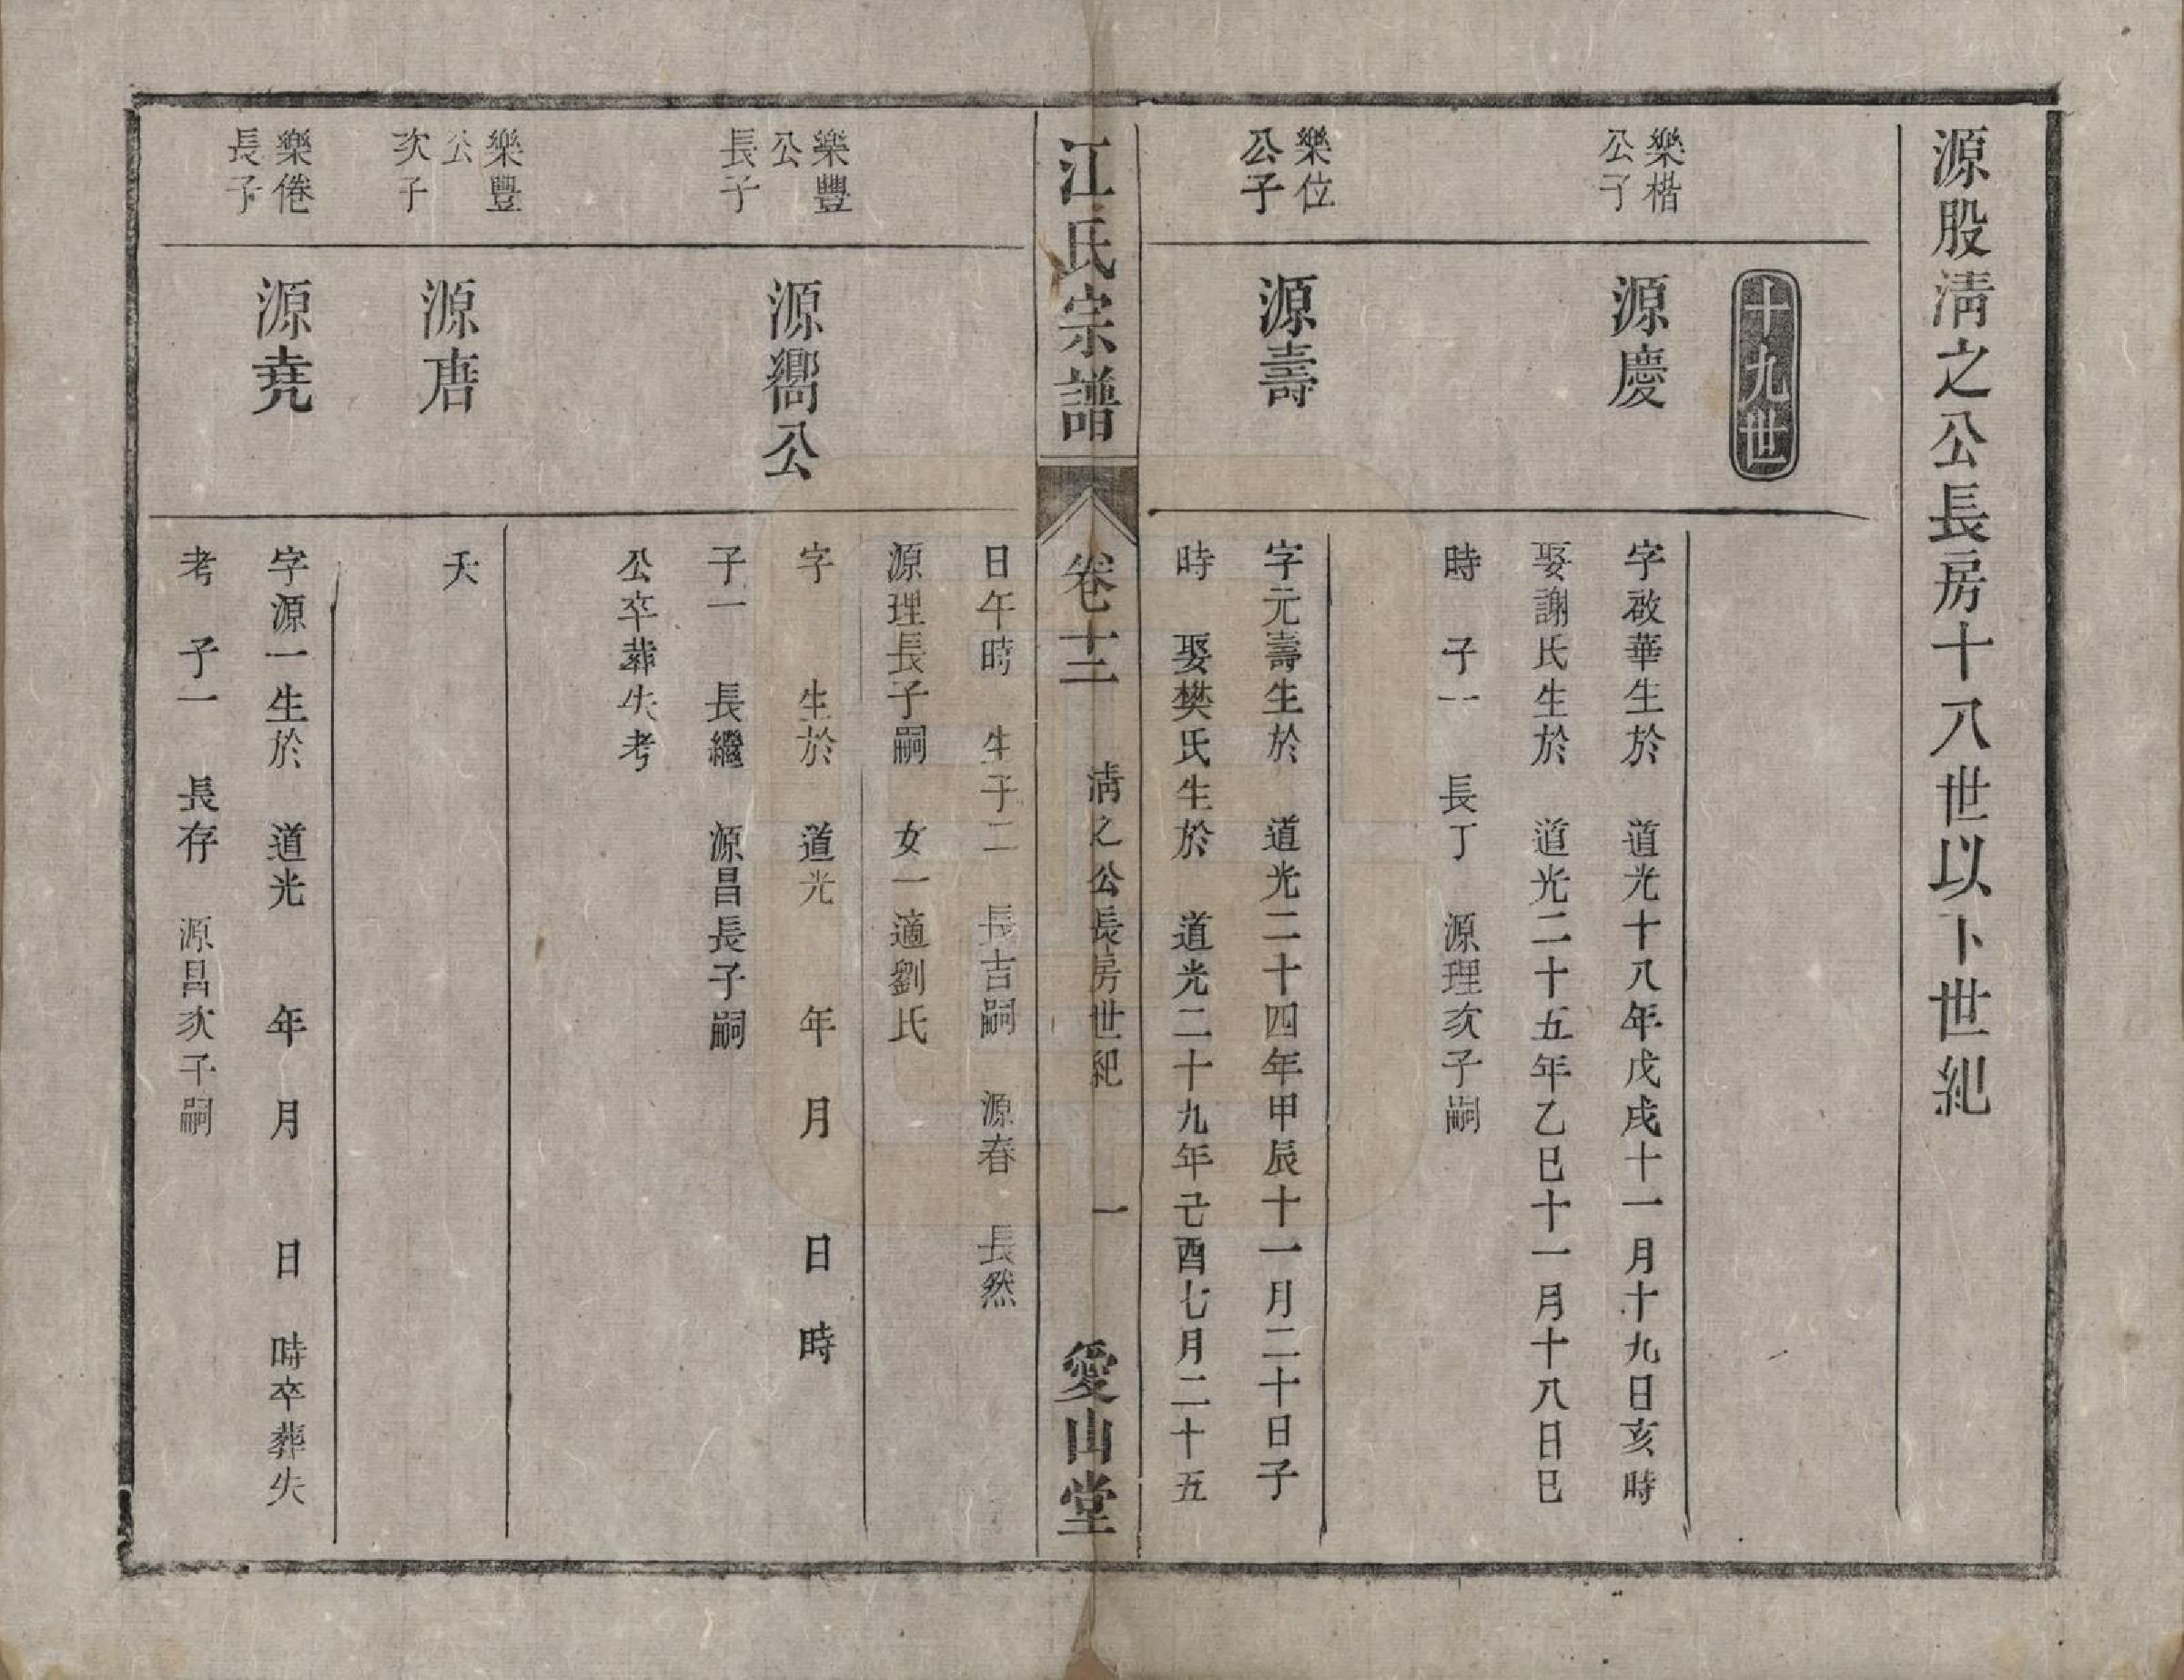 源股淸之公長房十八世以下世紀
十九世
樂楷
公子
源慶
字啟華生於 道光十八年戊戌十一月十九日亥時
娶謝氏生於 道光二十五年乙巳十一月十八日巳
時 子一 長丁 源理次子嗣
樂位
公子
源壽
字元壽生於 道光二十四年甲辰十一月二十日子
時 娶樊氏生於 道光二十九年己酉七月二十五
江氏宗譜 卷十二 淸之公長房世紀 一 愛山堂
日午時 生子二 長吉嗣 源春 長然
源理長子嗣 女一適劉氏
樂豐
公
長子
源嚮公
字 生於 道光 年 月 日 時
子一 長繼 源昌長子嗣
公卒葬失考
樂豐
公
次子
源唐
夭
樂倦
長子
源堯
字源一生於 道光 年 月 日 時卒葬失
考 子一 長存 源昌次子嗣